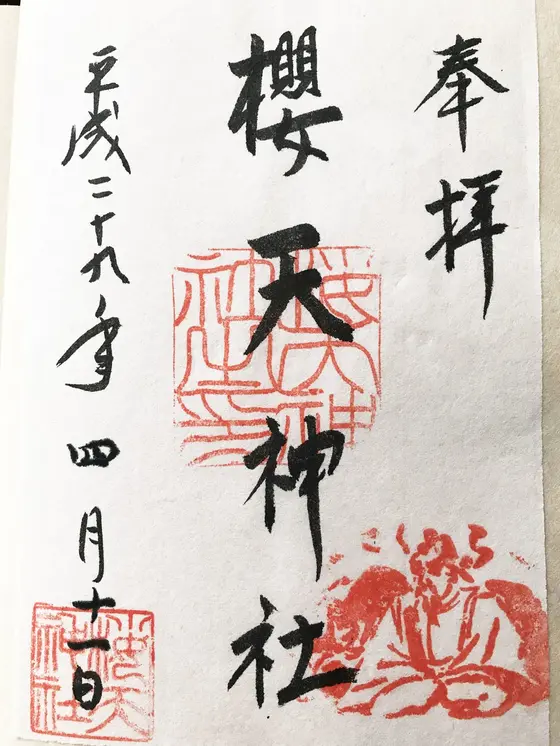 奉拝
櫻天神社
平成二十九年四月十一日